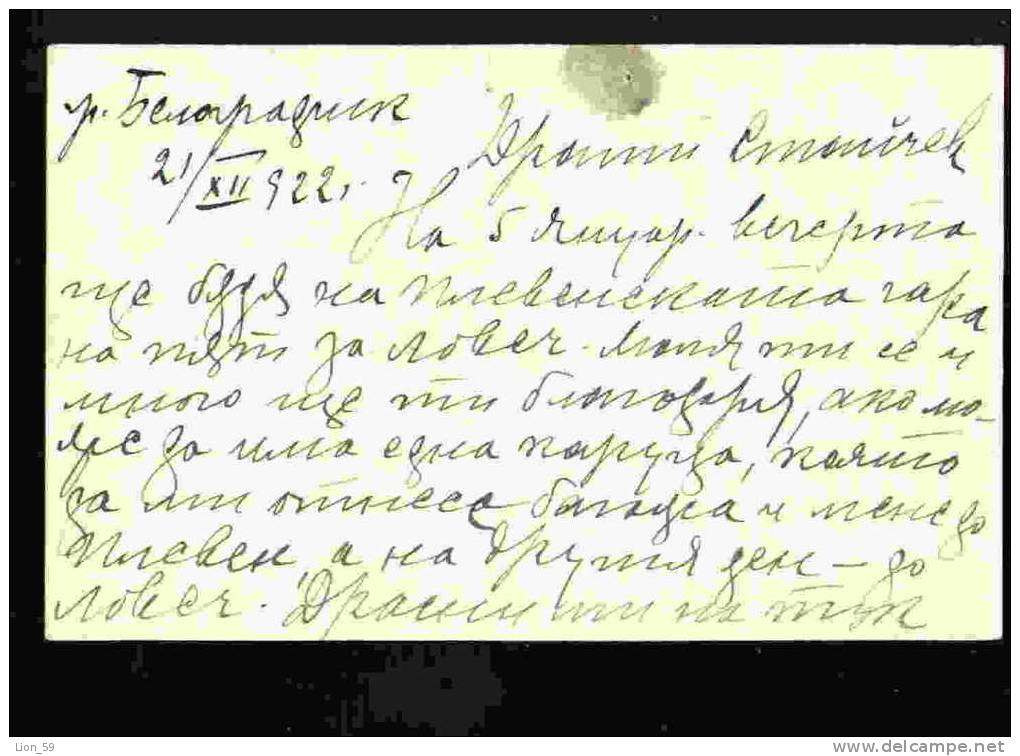 гр. Белоградчик
21/XII 922 г.
Драгий Стойчев
На 5 януар. вечерта
ще бѫдѫ на плевенската гара
на пѫть за Ловеч. Моля ти се и
много ще ти благодаря, ако мо-
же да има една каруца, която
да ми отнесе багажа и мене до
Плевен, а на другия ден — до
Ловеч. Драгий
Lion_59
www.delcampe.net